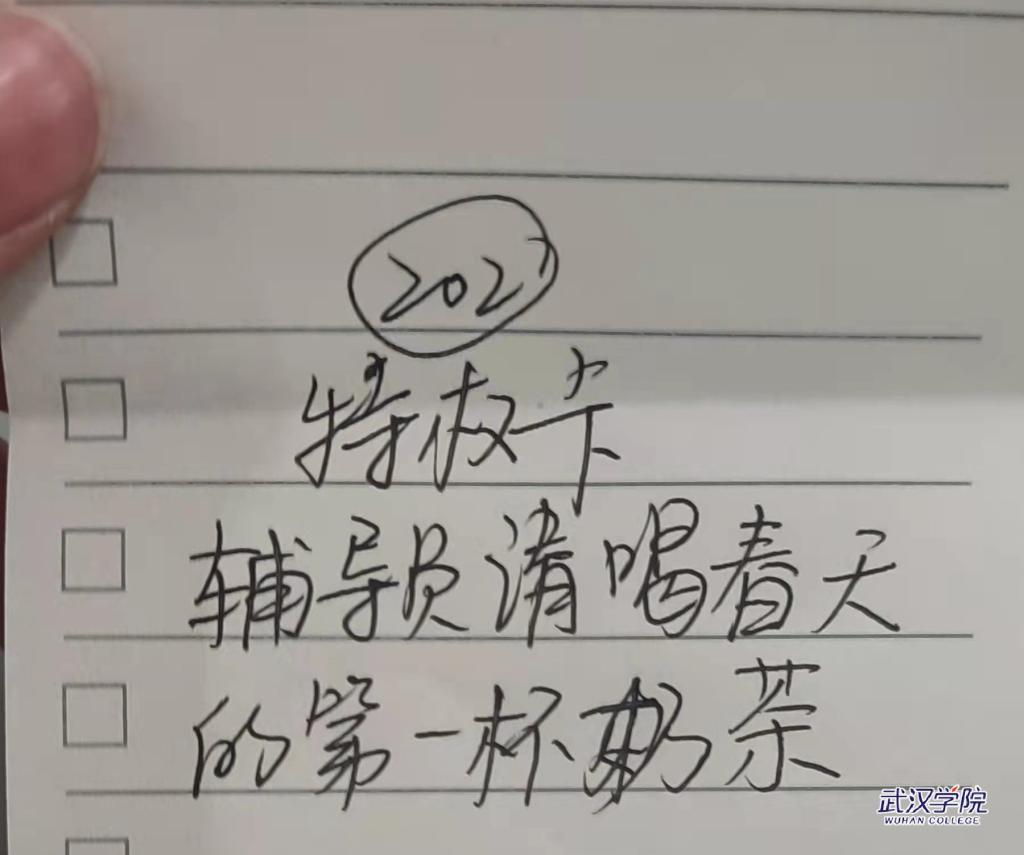 2023
特权卡
辅导员请喝春天
的第一杯奶茶
武汉学院
WUHAN COLLEGE